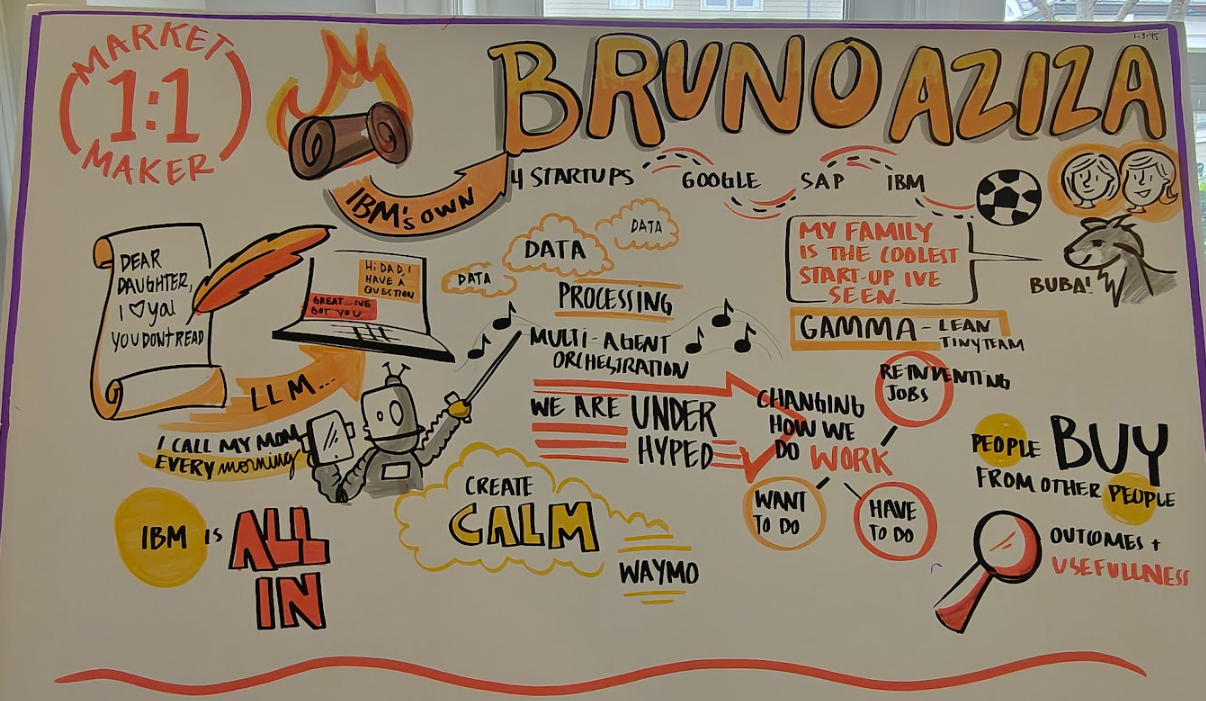 MARKET
1:1
MAKER
BRUNO AZIZA
IBM's OWN
4 STARTUPS
GOOGLE
SAP
IBM
DEAR
DAUGHTER,
I ♡ you
YOU DON'T READ
HI DAD, I
HAVE A
QUESTION
GREAT...I'VE
GOT YOU
LLM...
I CALL MY MOM
EVERY morning
IBM IS ALL
IN
DATA
DATA
DATA
PROCESSING
MULTI-AGENT
ORCHESTRATION
WE ARE UNDER
HYPED
CREATE
CALM
WAYMO
MY FAMILY
IS THE COOLEST
START-UP IVE
SEEN.
BUBA!
GAMMA - LEAN
TINY TEAM
REINVENTING
JOBS
CHANGING
HOW WE
DO WORK
WANT
TO DO
HAVE
TO DO
PEOPLE BUY
FROM OTHER PEOPLE
OUTCOMES +
USEFULLNESS